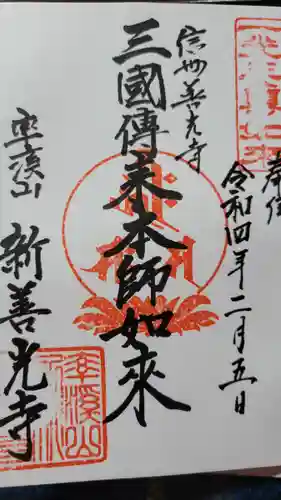 奉拝
令和四年二月五日
信州善光寺
三國傳来本師如來
霊溪山
新善光寺